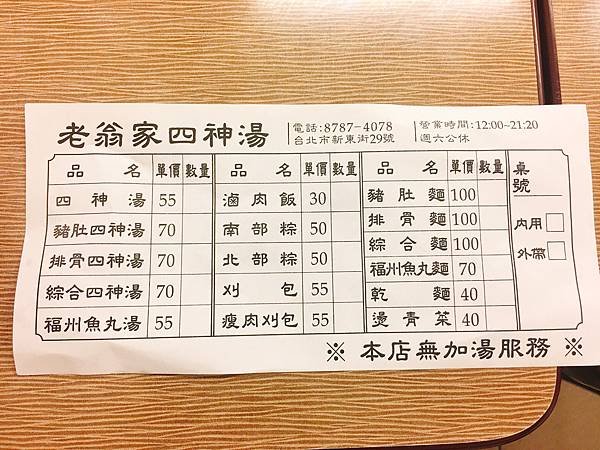 老翁家四神湯
電話:8787-4078
台北市新東街29號
營業時間:12:00~21:20
週六公休
品名 單價 數量 品名 單價 數量 品名 單價 數量 桌號
四神湯 55 滷肉飯 30 豬肚麵 100
豬肚四神湯 70 南部粽 50 排骨麵 100 內用
排骨四神湯 70 北部粽 50 綜合麵 100 外帶
綜合四神湯 70 刈包 55 福州魚丸麵 70
福州魚丸湯 55 瘦肉刈包 55 乾麵 40
燙青菜 40
※ 本店無加湯服務 ※